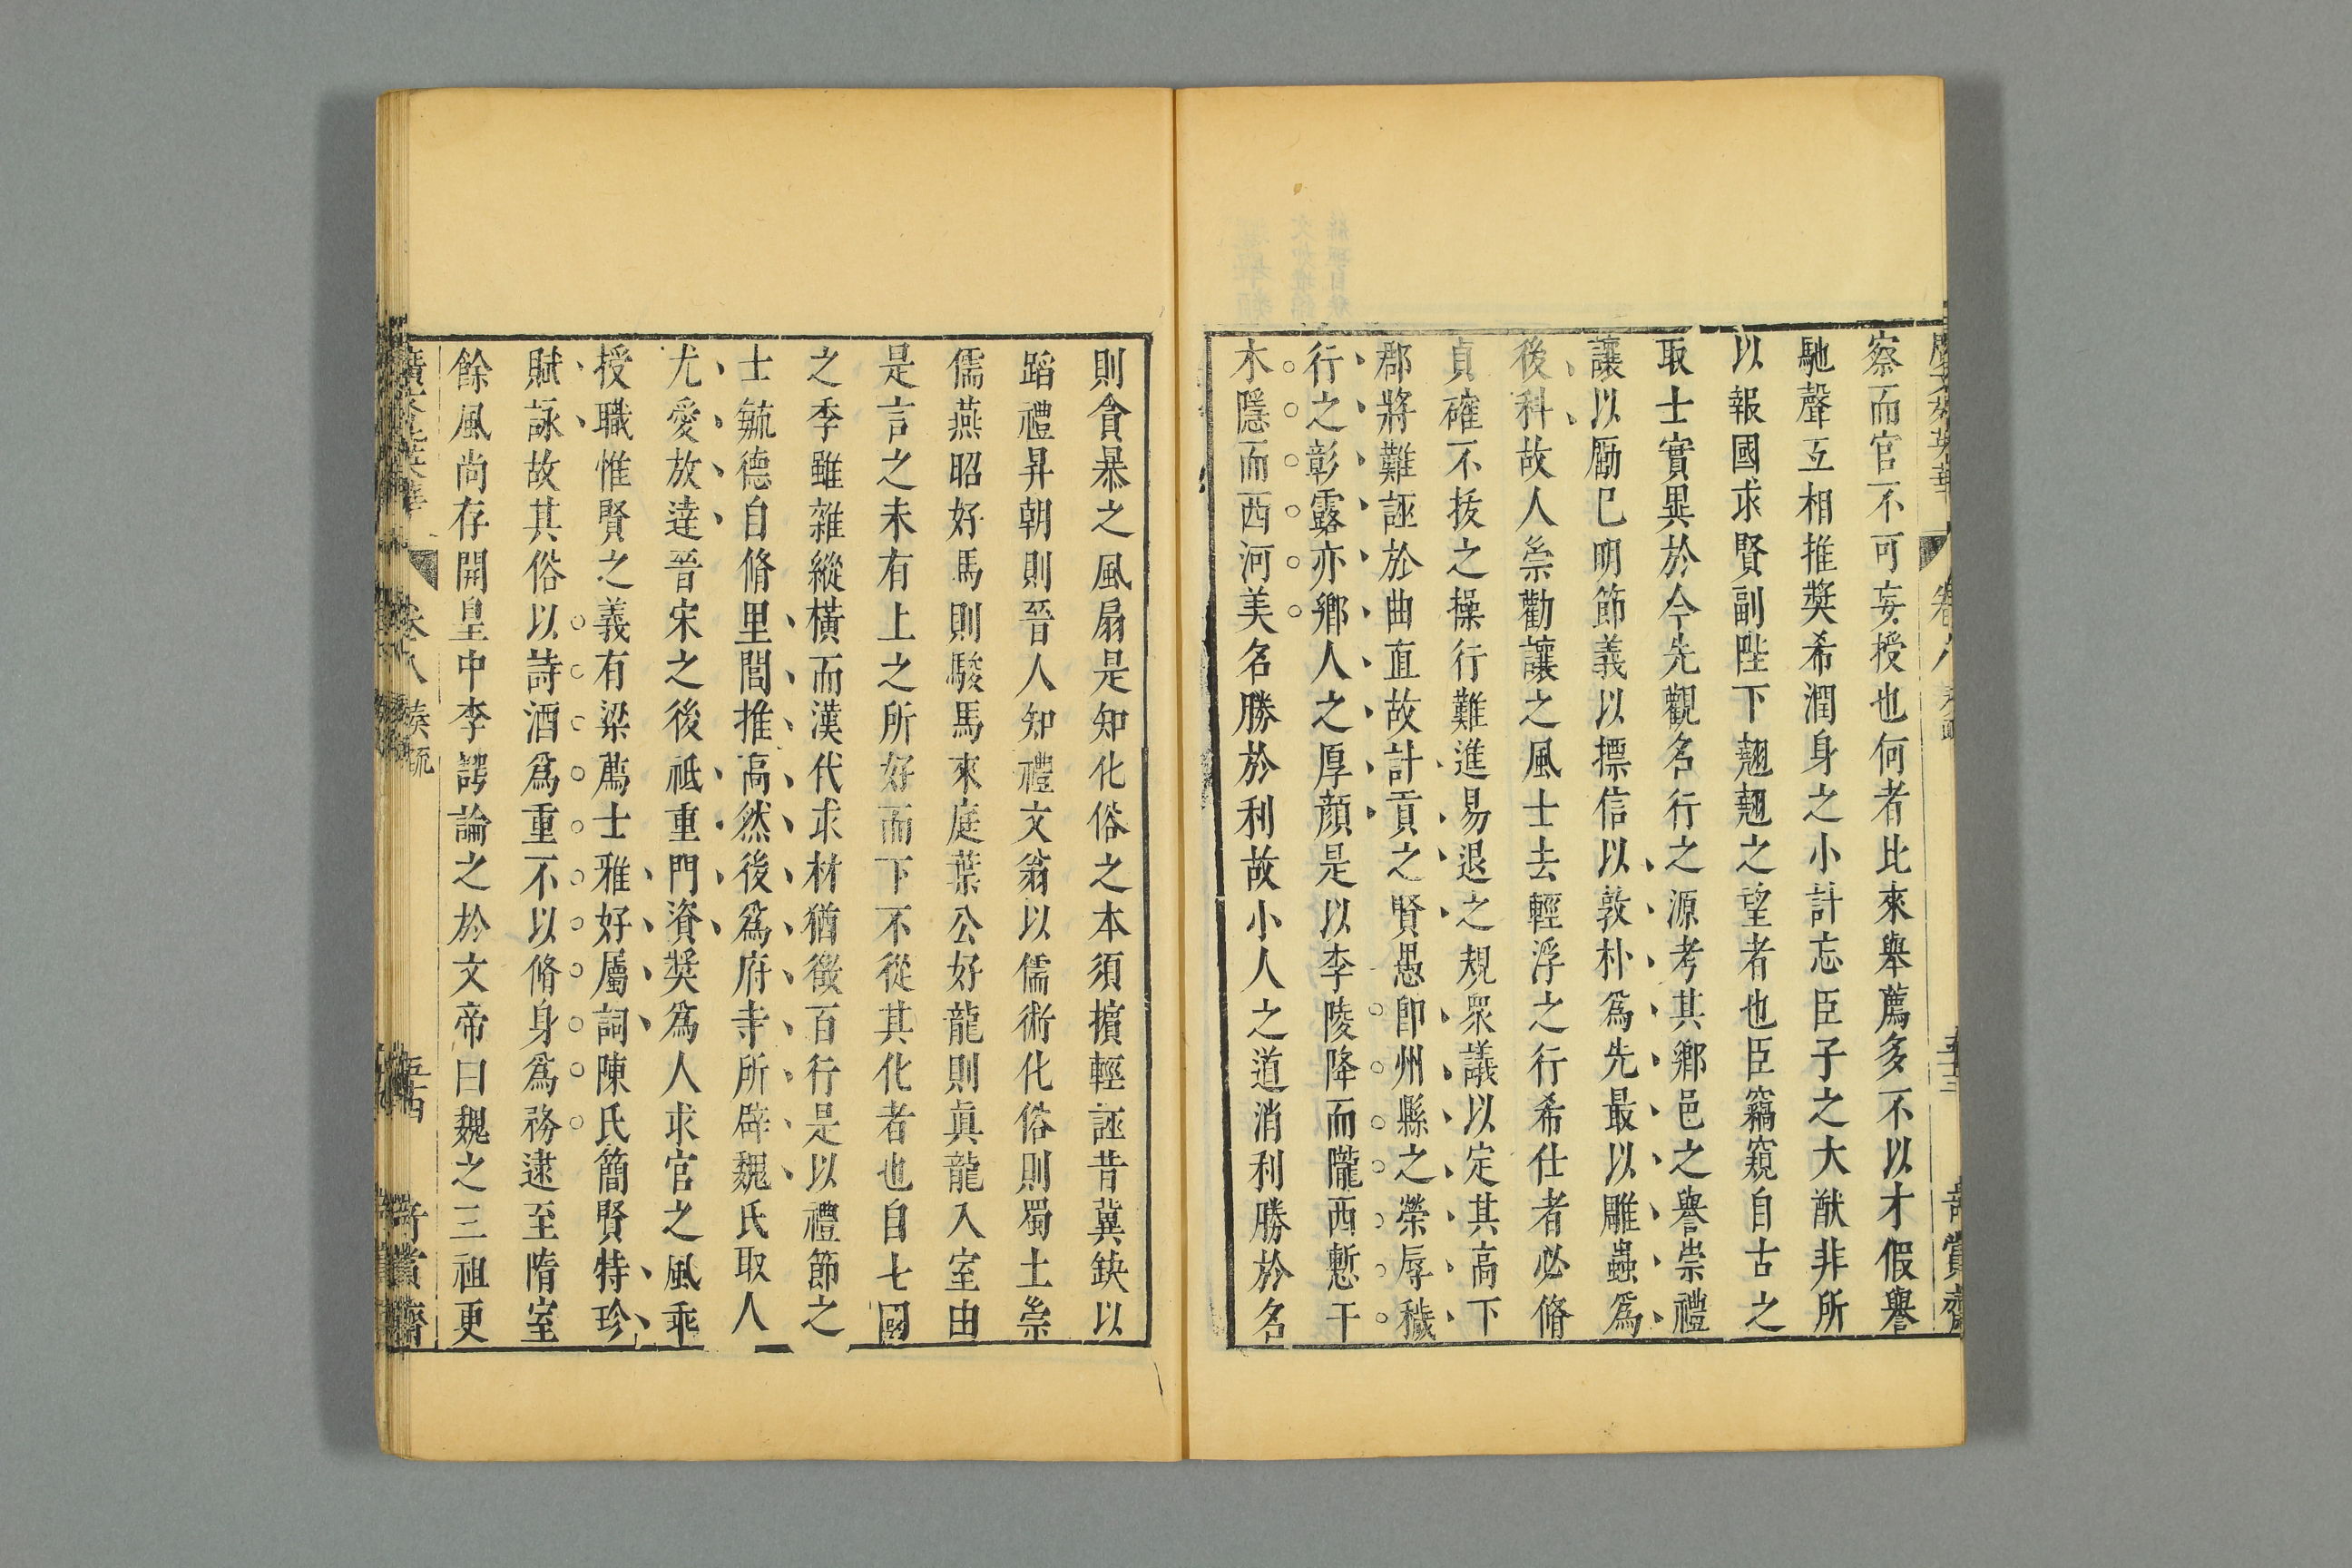 察而官不可妄授也何者比來舉薦多不以才假譽
馳聲互相推奬希潤身之小計忘臣子之大猷非所
以報國求賢副陛下翹翹之望者也臣竊窺自古之
取士實異於今先觀名行之源考其鄉邑之譽崇禮
讓以勵已明節義以摽信以敦朴爲先最以雕蟲爲
後科故人崇勸讓之風士去輕浮之行希仕者必脩
貞確不拔之操行難進易退之規衆議以定其高下
郡將難誣於曲直故計貢之賢愚卽州縣之榮辱穢
行之彰露亦鄉人之厚顏是以李陵降而隴西慙干
木隱而西河美名勝於利故小人之道消利勝於名
則貪暴之風扇是知化俗之本須擯輕誣昔冀缺以
蹈禮昇朝則晉人知禮文翁以儒術化俗則蜀士崇
儒燕昭好馬則駿馬來庭葉公好龍則眞龍入室由
是言之未有上之所好而下不從其化者也自七國
之季雖雜縱橫而漢代求材猶徵百行是以禮節之
士毓德自脩里閭推高然後爲府寺所辟魏氏取人
尤愛放達晉宋之後祗重門資奬爲人求官之風乖
授職惟賢之義有梁薦士雅好屬詞陳氏簡賢特珍
賦詠故其俗以詩酒爲重不以脩身爲務逮至隋室
餘風尚存開皇中李諤論之於文帝曰魏之三祖更
卷八 奏疏
五十四
奇賞齋